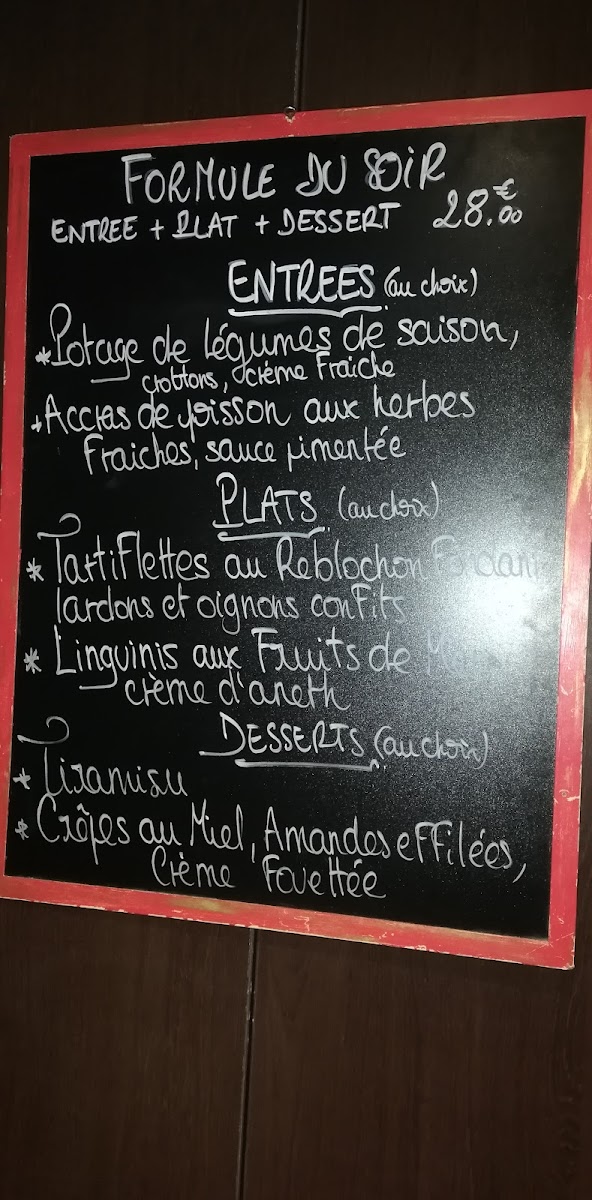 FORMULE DU SOIR
ENTREE + PLAT + DESSERT 28.00€
ENTREES (au choix)
* Potage de légumes de saison,
croûtons, crème Fraiche
* Accras de poisson aux herbes
Fraiches, sauce pimentée
PLATS (au choix)
* TartiFlettes au Reblochon Fondant
lardons et oignons conFits
* Linguinis aux Fruits de
crème d'aneth
DESSERTS (au choix)
* Tiramisu
* Crêpes au Miel, Amandes eFFilées,
Crème Fouettée